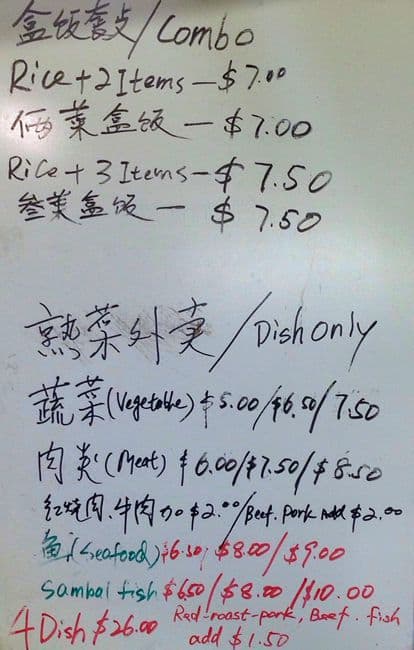 盒饭套点/Combo
Rice+2Items-$7.00
俩菜盒饭-$7.00
Rice+3Items-$7.50
叁菜盒饭-$7.50
熟菜外卖/Dish only
蔬菜(Vegetable)$5.00/$6.50/7.50
肉类(Meat)$6.00/$7.50/$8.50
红烧肉.牛肉加$2.00/Beef.Pork Add $2.00
鱼(Seafood)$6.50/$8.00/$9.00
Sambal fish $6.50/$8.00/$10.00
4 Dish $26.00 Red-roast-pork, Beef. fish
add $1.50